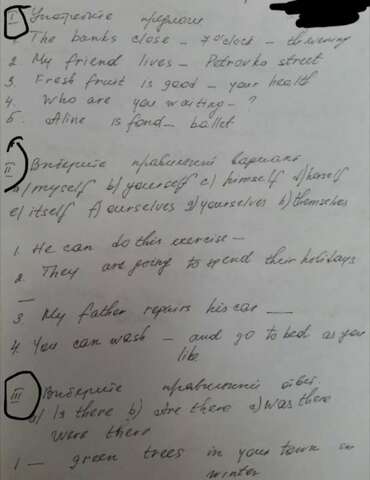 I Употребите предлоги
1. The banks close – 7 o'clock – the evening
2 My friend lives – Petrovka street
3. Fresh fruit is good – your health
4. Who are you waiting – ?
5. Aline is fond – ballet
II Выберите правильный вариант
a) myself b) yourself c) himself d) herself
e) itself f) ourselves g) yourselves h) themselves
1. He can do this exercise –
2. They are going to spend their holidays
–
3 My father repairs his car —
4. You can wash – and go to bed as you
like
III Выберите правильный ответ
a) Is there b) Are there c) Was there
Were there
1 — green trees in your town in
winter